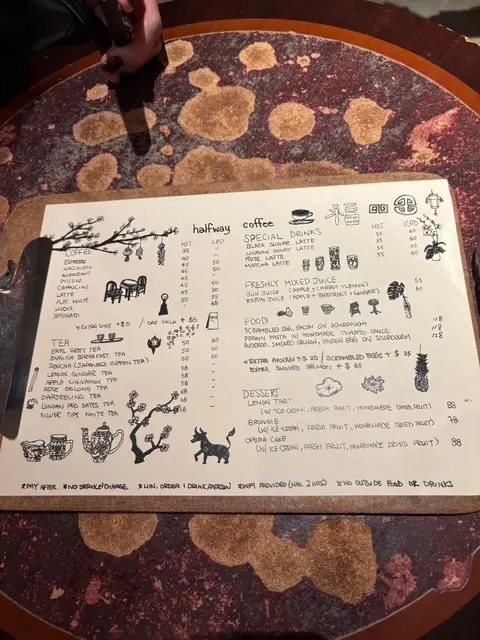 halfway coffee
COFFEE HOT ICED
ESPRESSO 35 -
MACCHIATO 40 -
AMERICANO 45
PICCOLO 45 -
CAPPUCCINO 45 50
LATTE 45 50
FLAT WHITE 45 50
MOCHA 50 55
AFFOGATO 68
*EXTRA SHOT +$5 / OAT MILK + $5
TEA
EARL GREY TEA 50 60
ENGLISH BREAKFAST TEA 50 60
SENCHA (JAPANESE GREEN TEA) 50 60
LEMON GINGER TEA 58 -
APPLE CINNAMON TEA 58 -
ROSE OOLONG TEA 58 -
DARJEELING TEA 58 -
LONGAN RED DATES TEA 58 -
SILVER TIPS WHITE TEA 58 -
福
SPECIAL DRINKS HOT ICED
BLACK SUGAR LATTE 55 60
LONGAN HONEY LATTE 55 60
ROSE LATTE 55 60
MATCHA LATTE 55 60
FRESHLY MIXED JUICE
SUN JUICE (APPLE + CARROT + LEMON) 60
EARTH JUICE (APPLE + BEETROOT + GINGER) 60
FOOD
SCRAMBLED EGG, BACON ON SOURDOUGH 118
PRAWN PASTA W/ HOMEMADE TOMATO SAUCE 128
AVOCADO, SMOKED SALMON, ONSEN EGG ON SOURDOUGH 128
*EXTRA AVOCADO + $ 20 / SCRAMBLED EGGS + $ 25
EXTRA SMOKED SALMON + $ 30
DESSERT
LEMON TART 88
(W/ ICE-CREAM, FRESH FRUIT, HOMEMADE DRIED FRUIT)
BROWNIE 78
(W/ ICE-CREAM, FRESH FRUIT, HOMEMADE DRIED FRUIT)
OPERA CAKE 88
(W/ ICE-CREAM, FRESH FRUIT, HOMEMADE DRIED FRUIT)
*PAY AFTER *NO SERVICE CHARGE *MIN. ORDER 1 DRINK/PERSON *WIFI PROVIDED (MAX 2 HRS) *NO OUTSIDE FOOD OR DRINKS